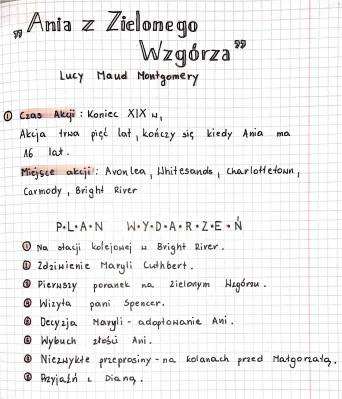 „Ania z Zielonego
Wzgórza”
Lucy Maud Montgomery
① Czas Akcji : Koniec XIX w,
Akcja trwa pięć lat, kończy się kiedy Ania ma
16 lat.
Miejsce akcji : Avonlea, Whitesands, Charlottetown,
Carmody, Bright River
P•L•A•N W•Y•D•A•R•Z•E•Ń
① Na stacji kolejowej w Bright River.
② Zdziwienie Maryli Cuthbert.
③ Pierwszy poranek na Zielonym Wzgórzu.
④ Wizyta pani Spencer.
⑤ Decyzja Maryli - adoptowanie Ani.
⑥ Wybuch złości Ani.
⑦ Niezwykłe przeprosiny - na kolanach przed Małgorzatą.
⑧ Przyjaźń z Dianą.